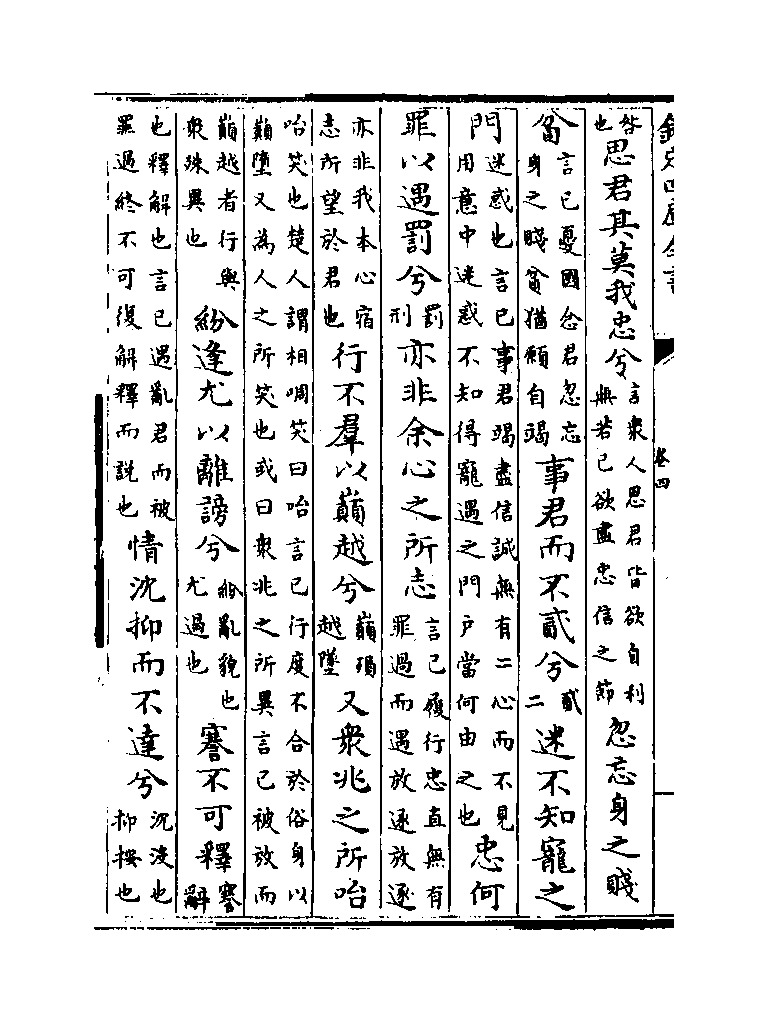 欽定四庫全書
卷四
咎也思君其莫我忠兮言衆人思君皆欲自利無若已欲盡忠信之節忽忘身之賤
貧言已憂國念君忽忘身之賤貧猶願自竭事君而不貳兮貳二迷不知寵之
門迷惑也言已事君竭盡信誠無有二心而不見用意中迷惑不知得寵遇之門戶當何由之也忠何
罪以遇罰兮罰刑亦非余心之所志言已履行忠直無有罪過而遇放逐放逐
亦非我本心宿志所望於君也行不羣以巔越兮巔殞越墜又衆兆之所咍
咍笑也楚人謂相啁笑曰咍言已行度不合於俗身以巔墮又為人之所笑也或曰衆兆之所異言已被放而
巔越者行與衆殊異也紛逢尤以離謗兮紛亂貌也尤過也謇不可釋謇辭
也釋解也言已遇亂君而被罪過終不可復解釋而說也情沈抑而不達兮沉没也抑按也